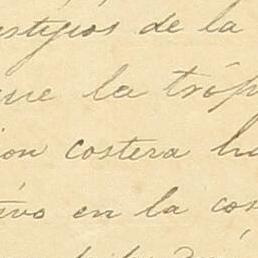 estijios de la
que la tróp
ion costera ha
ivo en la cos